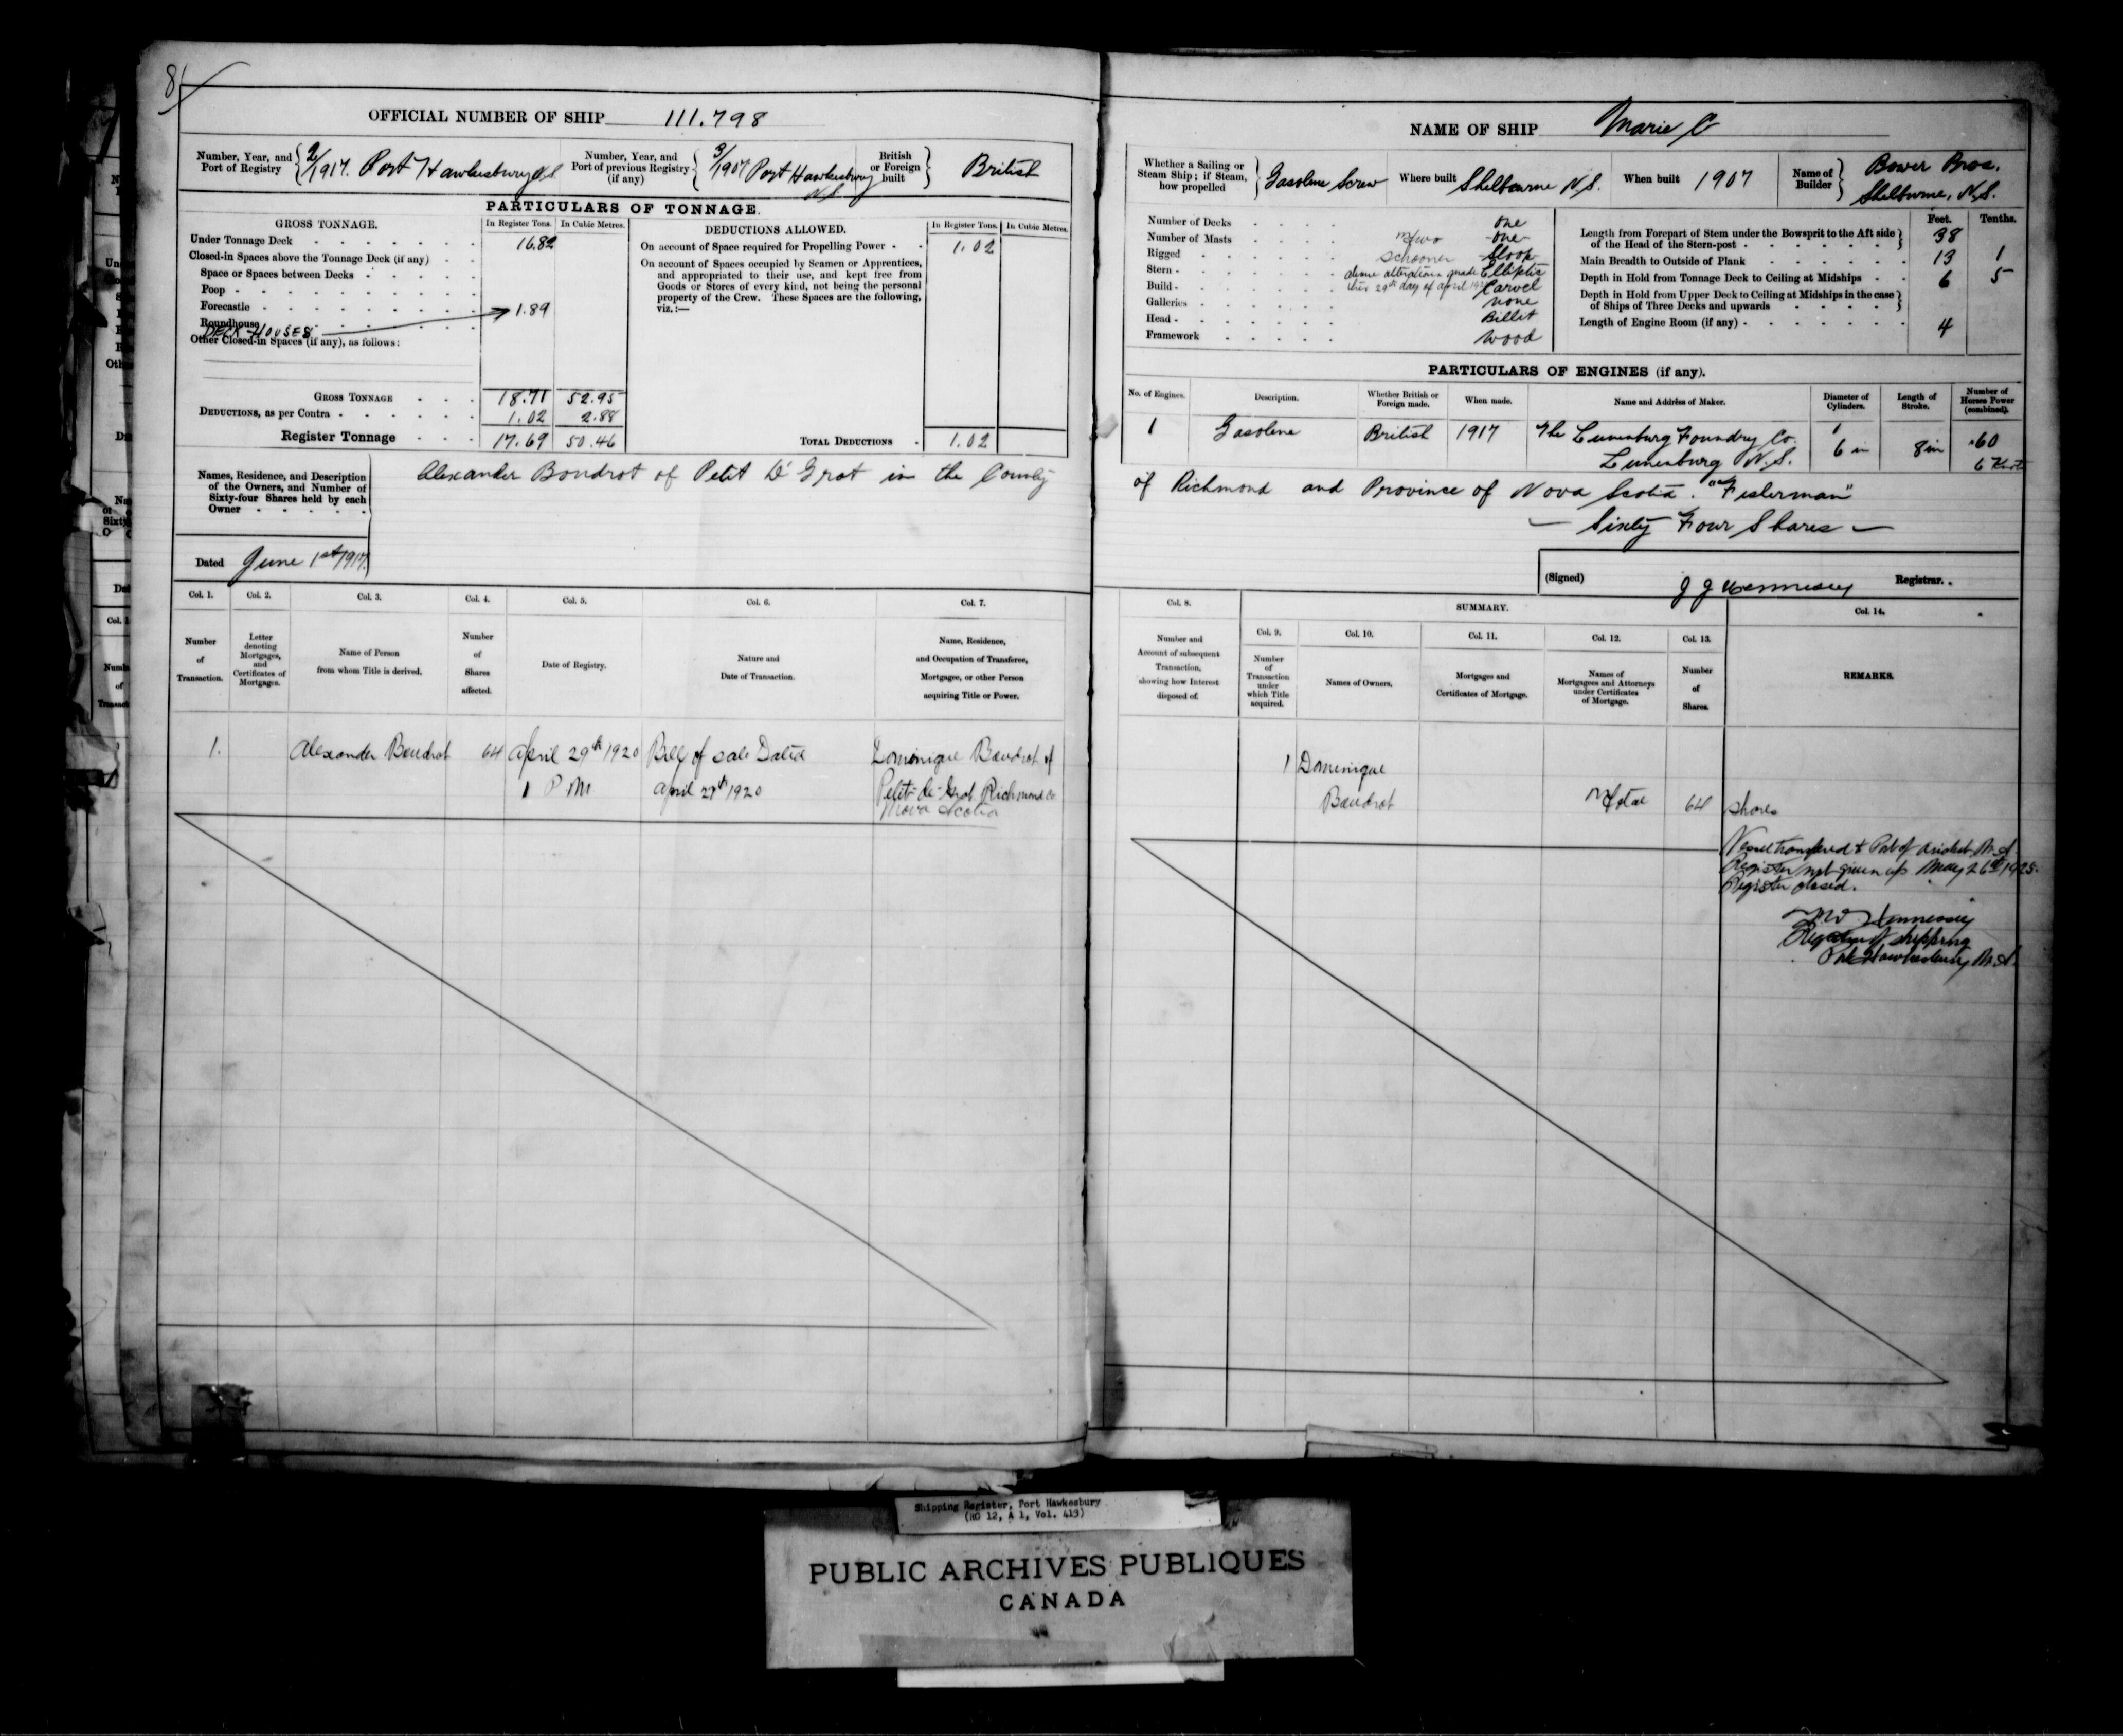 81
OFFICIAL NUMBER OF SHIP 111.798
Number, Year, and Port of Registry 2/1917. Port Hawkesbury N.S
Number, Year, and Port of previous Registry (if any) 3/1907 Port Hawkesbury N.S
British or Foreign built British
PARTICULARS OF TONNAGE.
GROSS TONNAGE. In Register Tons. In Cubic Metres.
Under Tonnage Deck 16.82
Closed-in Spaces above the Tonnage Deck (if any)
Space or Spaces between Decks
Poop
Forecastle 1.89
Roundhouse
DECK HOUSES
Other Closed-in Spaces (if any), as follows:
GROSS TONNAGE 18.71 52.95
DEDUCTIONS, as per Contra 1.02 2.88
Register Tonnage 17.69 50.46
DEDUCTIONS ALLOWED. In Register Tons. In Cubic Metres.
On account of Space required for Propelling Power 1.02
On account of Spaces occupied by Seamen or Apprentices,
and appropriated to their use, and kept free from
Goods or Stores of every kind, not being the personal
property of the Crew. These Spaces are the following,
viz.:—
TOTAL DEDUCTIONS 1.02
NAME OF SHIP Marie C
Whether a Sailing or Steam Ship; if Steam, how propelled Gasoline Screw
Where built Shelburne N.S.
When built 1907
Name of Builder Bower Bros. Shelburne, N.S.
Number of Decks one
Number of Masts Two one
Rigged Schooner Sloop
Stern Elliptic
above alterations made
this 29th day of April 1920
Build Carvel
Galleries none
Head Billet
Framework Wood
Feet. Tenths.
Length from Forepart of Stem under the Bowsprit to the Aft side of the Head of the Stern-post 38
Main Breadth to Outside of Plank 13 1
Depth in Hold from Tonnage Deck to Ceiling at Midships 6 5
Depth in Hold from Upper Deck to Ceiling at Midships in the case of Ships of Three Decks and upwards
Length of Engine Room (if any) 4
PARTICULARS OF ENGINES (if any).
No. of Engines. Description. Whether British or Foreign made. When made. Name and Address of Maker. Diameter of Cylinders. Length of Stroke. Number of Horses Power (combined).
1 Gasolene British 1917 The Lunenburg Foundry Co. Lunenburg N.S. 1 6 in 8 in .60 6 Knots
Names, Residence, and Description of the Owners, and Number of Sixty-four Shares held by each Owner
Alexander Boudrot of Petit D' Grat in the County
of Richmond and Province of Nova Scotia. "Fisherman"
— Sixty Four Shares —
Dated June 1st 1917.
(Signed) J J Hennessey Registrar.
Col. 1. Col. 2. Col. 3. Col. 4. Col. 5. Col. 6. Col. 7.
Number of Transaction.
Letter denoting Mortgages, and Certificates of Mortgages.
Name of Person from whom Title is derived.
Number of Shares affected.
Date of Registry.
Nature and Date of Transaction.
Name, Residence, and Occupation of Transferee, Mortgagee, or other Person acquiring Title or Power.
Col. 8. SUMMARY. Col. 14.
Col. 9. Col. 10. Col. 11. Col. 12. Col. 13.
Number and Account of subsequent Transaction, showing how Interest disposed of.
Number of Transaction under which Title acquired.
Names of Owners.
Mortgages and Certificates of Mortgage.
Names of Mortgagees and Attorneys under Certificates of Mortgage.
Number of Shares.
REMARKS.
1. Alexander Boudrot 64 April 29th 1920 Bill of Sale Dated Dominique Boudrot of
1 P M April 27th 1920 Petit-de-Grat Richmond Co
Nova Scotia
1 Dominique
Boudrot Total 64 shares
Vessel transfered to Port of Arichat N.S.
Register not given up May 26th 1925.
Register closed.
Hennessey
Registrar of Shipping
Port Hawkesbury N.S.
Shipping Register, Port Hawkesbury
(RG 12, A 1, Vol. 413)
PUBLIC ARCHIVES PUBLIQUES
CANADA